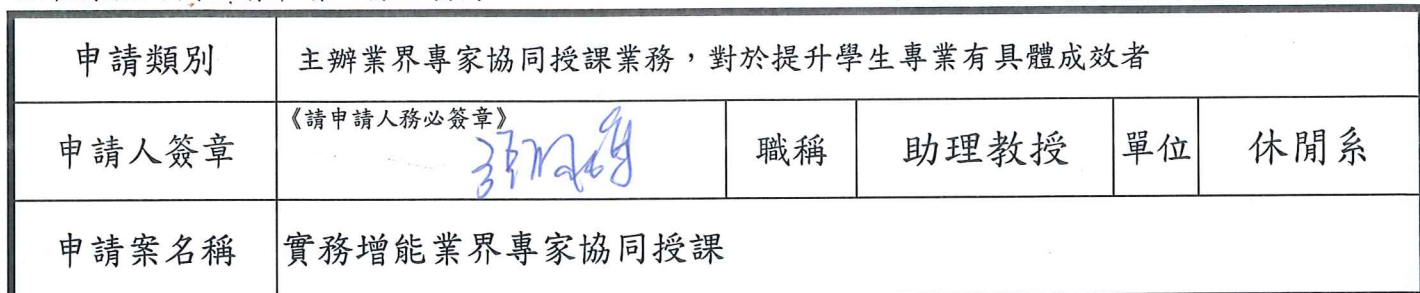 申請類別 主辦業界專家協同授課業務，對於提升學生專業有具體成效者
申請人簽章 《請申請人務必簽章》 職稱 助理教授 單位 休閒系
申請案名稱 實務增能業界專家協同授課